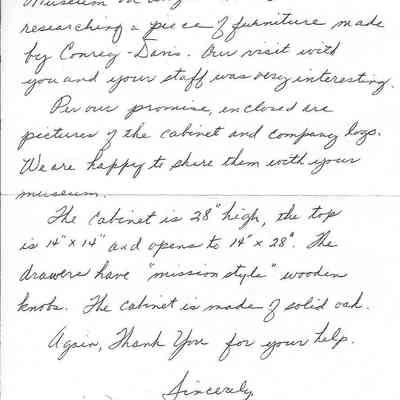 researching a piece of furniture made
by Conrey-Davis. Our visit with
you and your staff was very interesting.
Per our promise, enclosed are
pictures of the cabinet and company logo.
We are happy to share them with your
museum.
The cabinet is 28" high, the top
is 14" x 14" and opens to 14" x 28". The
drawers have "mission style" wooden
knobs. The cabinet is made of solid oak.
Again, Thank You for your help.
Sincerely,